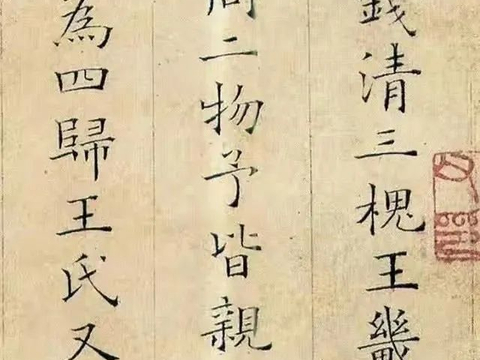 錢清三槐王畿
二物予皆親
為四歸王氏又